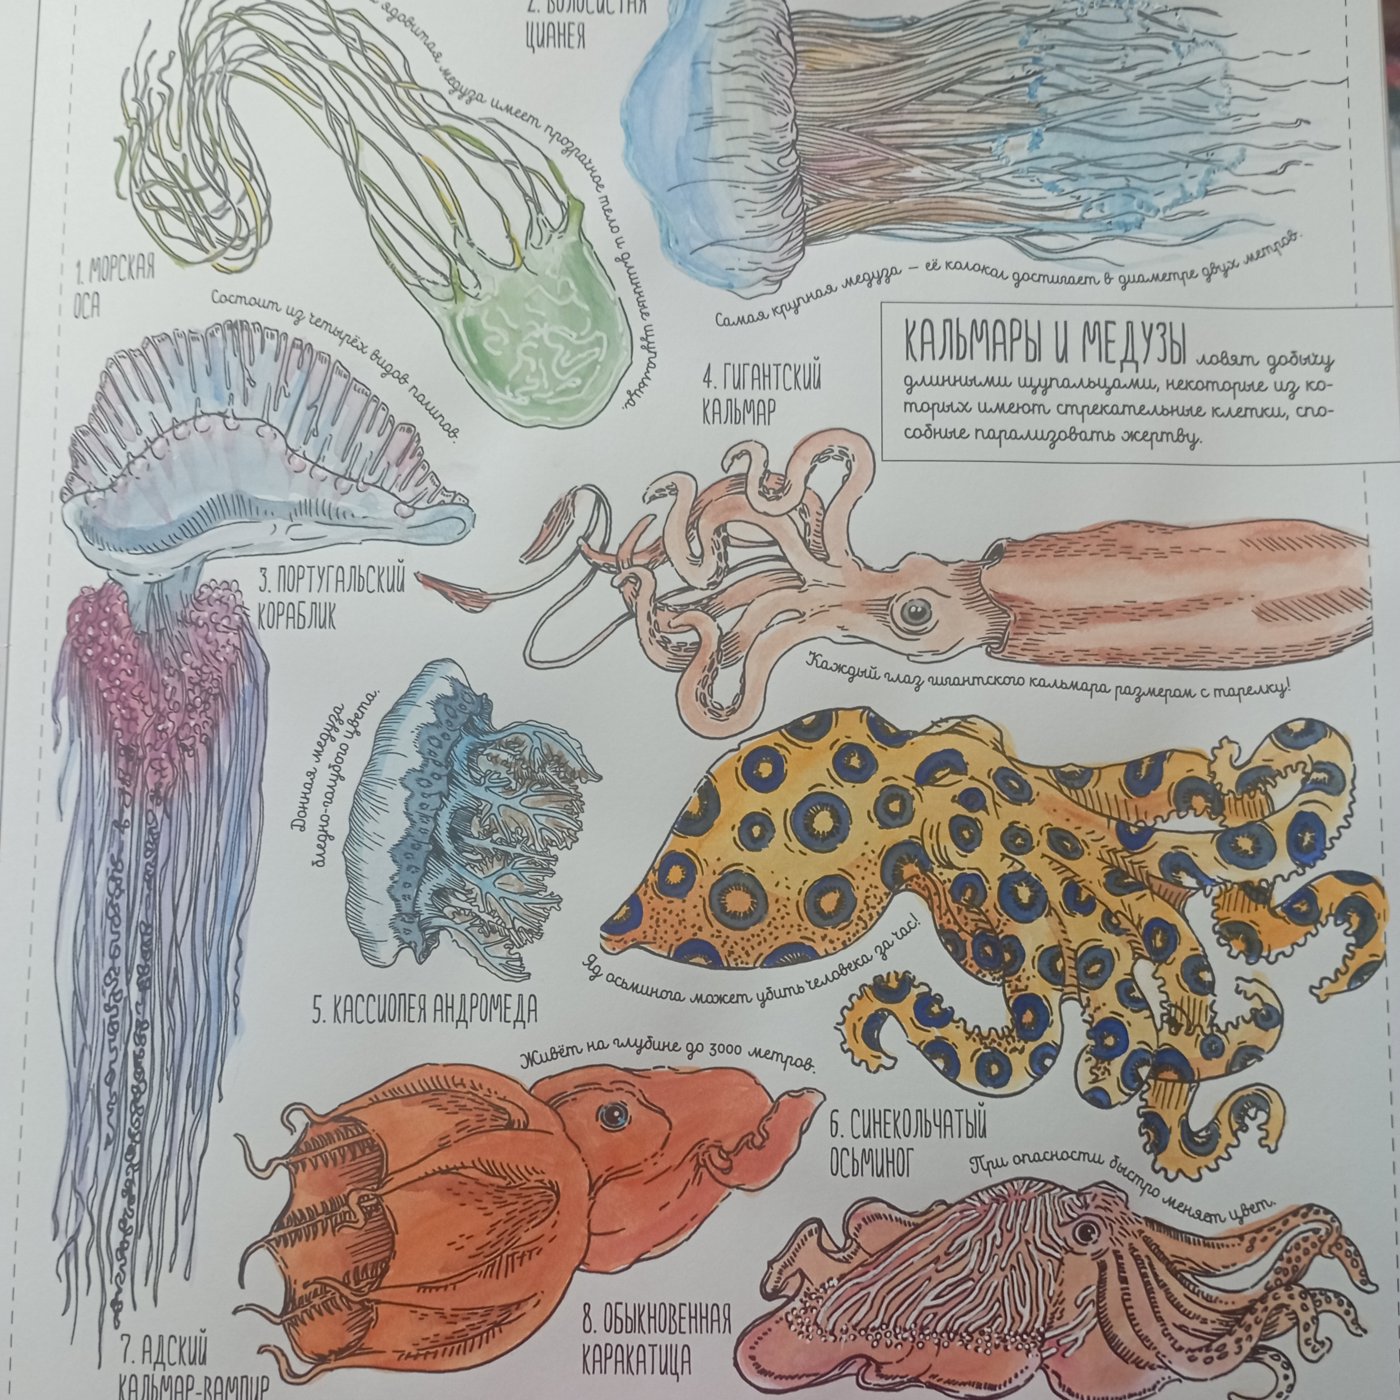 ядовитая медуза имеет прозрачное тело и длинные щупальца.
2. ВОЛОСИСТАЯ
ЦИАНЕЯ
1. МОРСКАЯ
ОСА
Самая крупная медуза – её колокол достигает в диаметре двух метров.
КАЛЬМАРЫ И МЕДУЗЫ ловят добычу
длинными щупальцами, некоторые из ко-
торых имеют стрекательные клетки, спо-
собные парализовать жертву.
Состоит из четырёх видов полипов.
3. ПОРТУГАЛЬСКИЙ
КОРАБЛИК
4. ГИГАНТСКИЙ
КАЛЬМАР
Каждый глаз гигантского кальмара размером с тарелку!
Донная медуза
бледно-голубого цвета.
5. КАССИОПЕЯ АНДРОМЕДА
Яд осьминога может убить человека за час!
6. СИНЕКОЛЬЧАТЫЙ
ОСЬМИНОГ
Живёт на глубине до 3000 метров.
7. АДСКИЙ
КАЛЬМАР-ВАМПИР
При опасности быстро меняет цвет.
8. ОБЫКНОВЕННАЯ
КАРАКАТИЦА